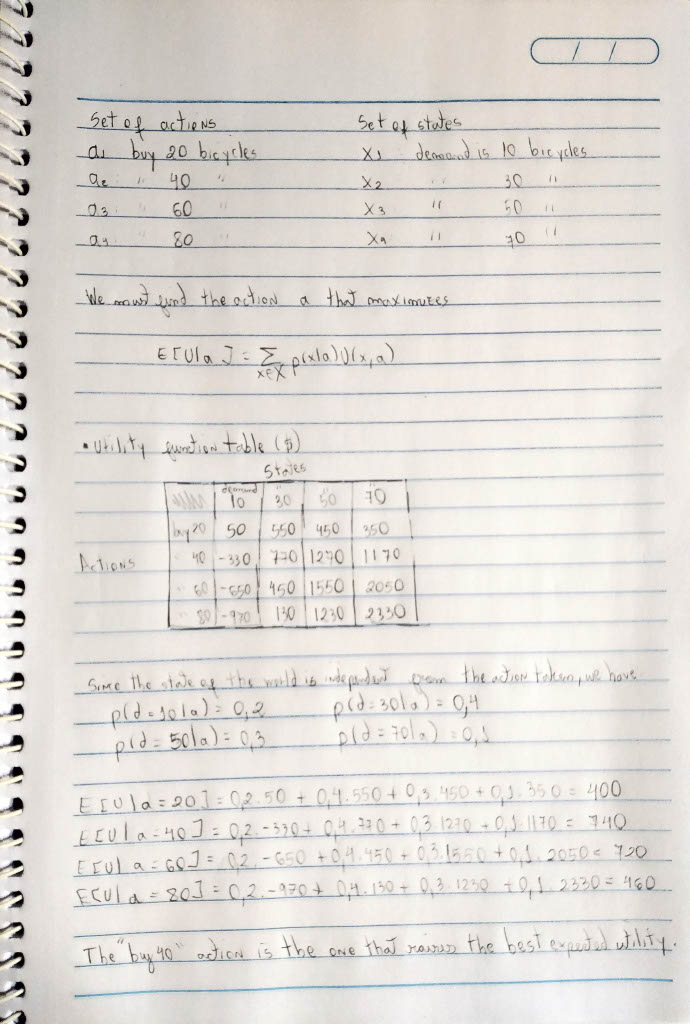 / /
Set of actions Set of states
a1 buy 20 bicycles x1 demand is 10 bicycles
a2 " 40 " x2 " 30 "
a3 " 60 " x3 " 50 "
a4 " 80 " x4 " 70 "
We must find the action a that maximizes
E[U|a] = Σ x∈X p(x|a)U(x,a)
• Utility function table ($)
States
demand 10 " 30 " 50 " 70
buy 20 50 550 450 350
Actions " 40 -330 770 1270 1170
" 60 -650 450 1550 2050
" 80 -970 130 1230 2330
Since the state of the world is independent from the action taken, we have
p(d=10|a) = 0,2 p(d=30|a) = 0,4
p(d=50|a) = 0,3 p(d=70|a) = 0,1
E[U|a=20] = 0,2.50 + 0,4.550 + 0,3.450 + 0,1.350 = 400
E[U|a=40] = 0,2.-330 + 0,4.770 + 0,3.1270 + 0,1.1170 = 740
E[U|a=60] = 0,2.-650 + 0,4.450 + 0,3.1550 + 0,1.2050 = 720
E[U|a=80] = 0,2.-970 + 0,4.130 + 0,3.1230 + 0,1.2330 = 460
The "buy 40" action is the one that raises the best expected utility.